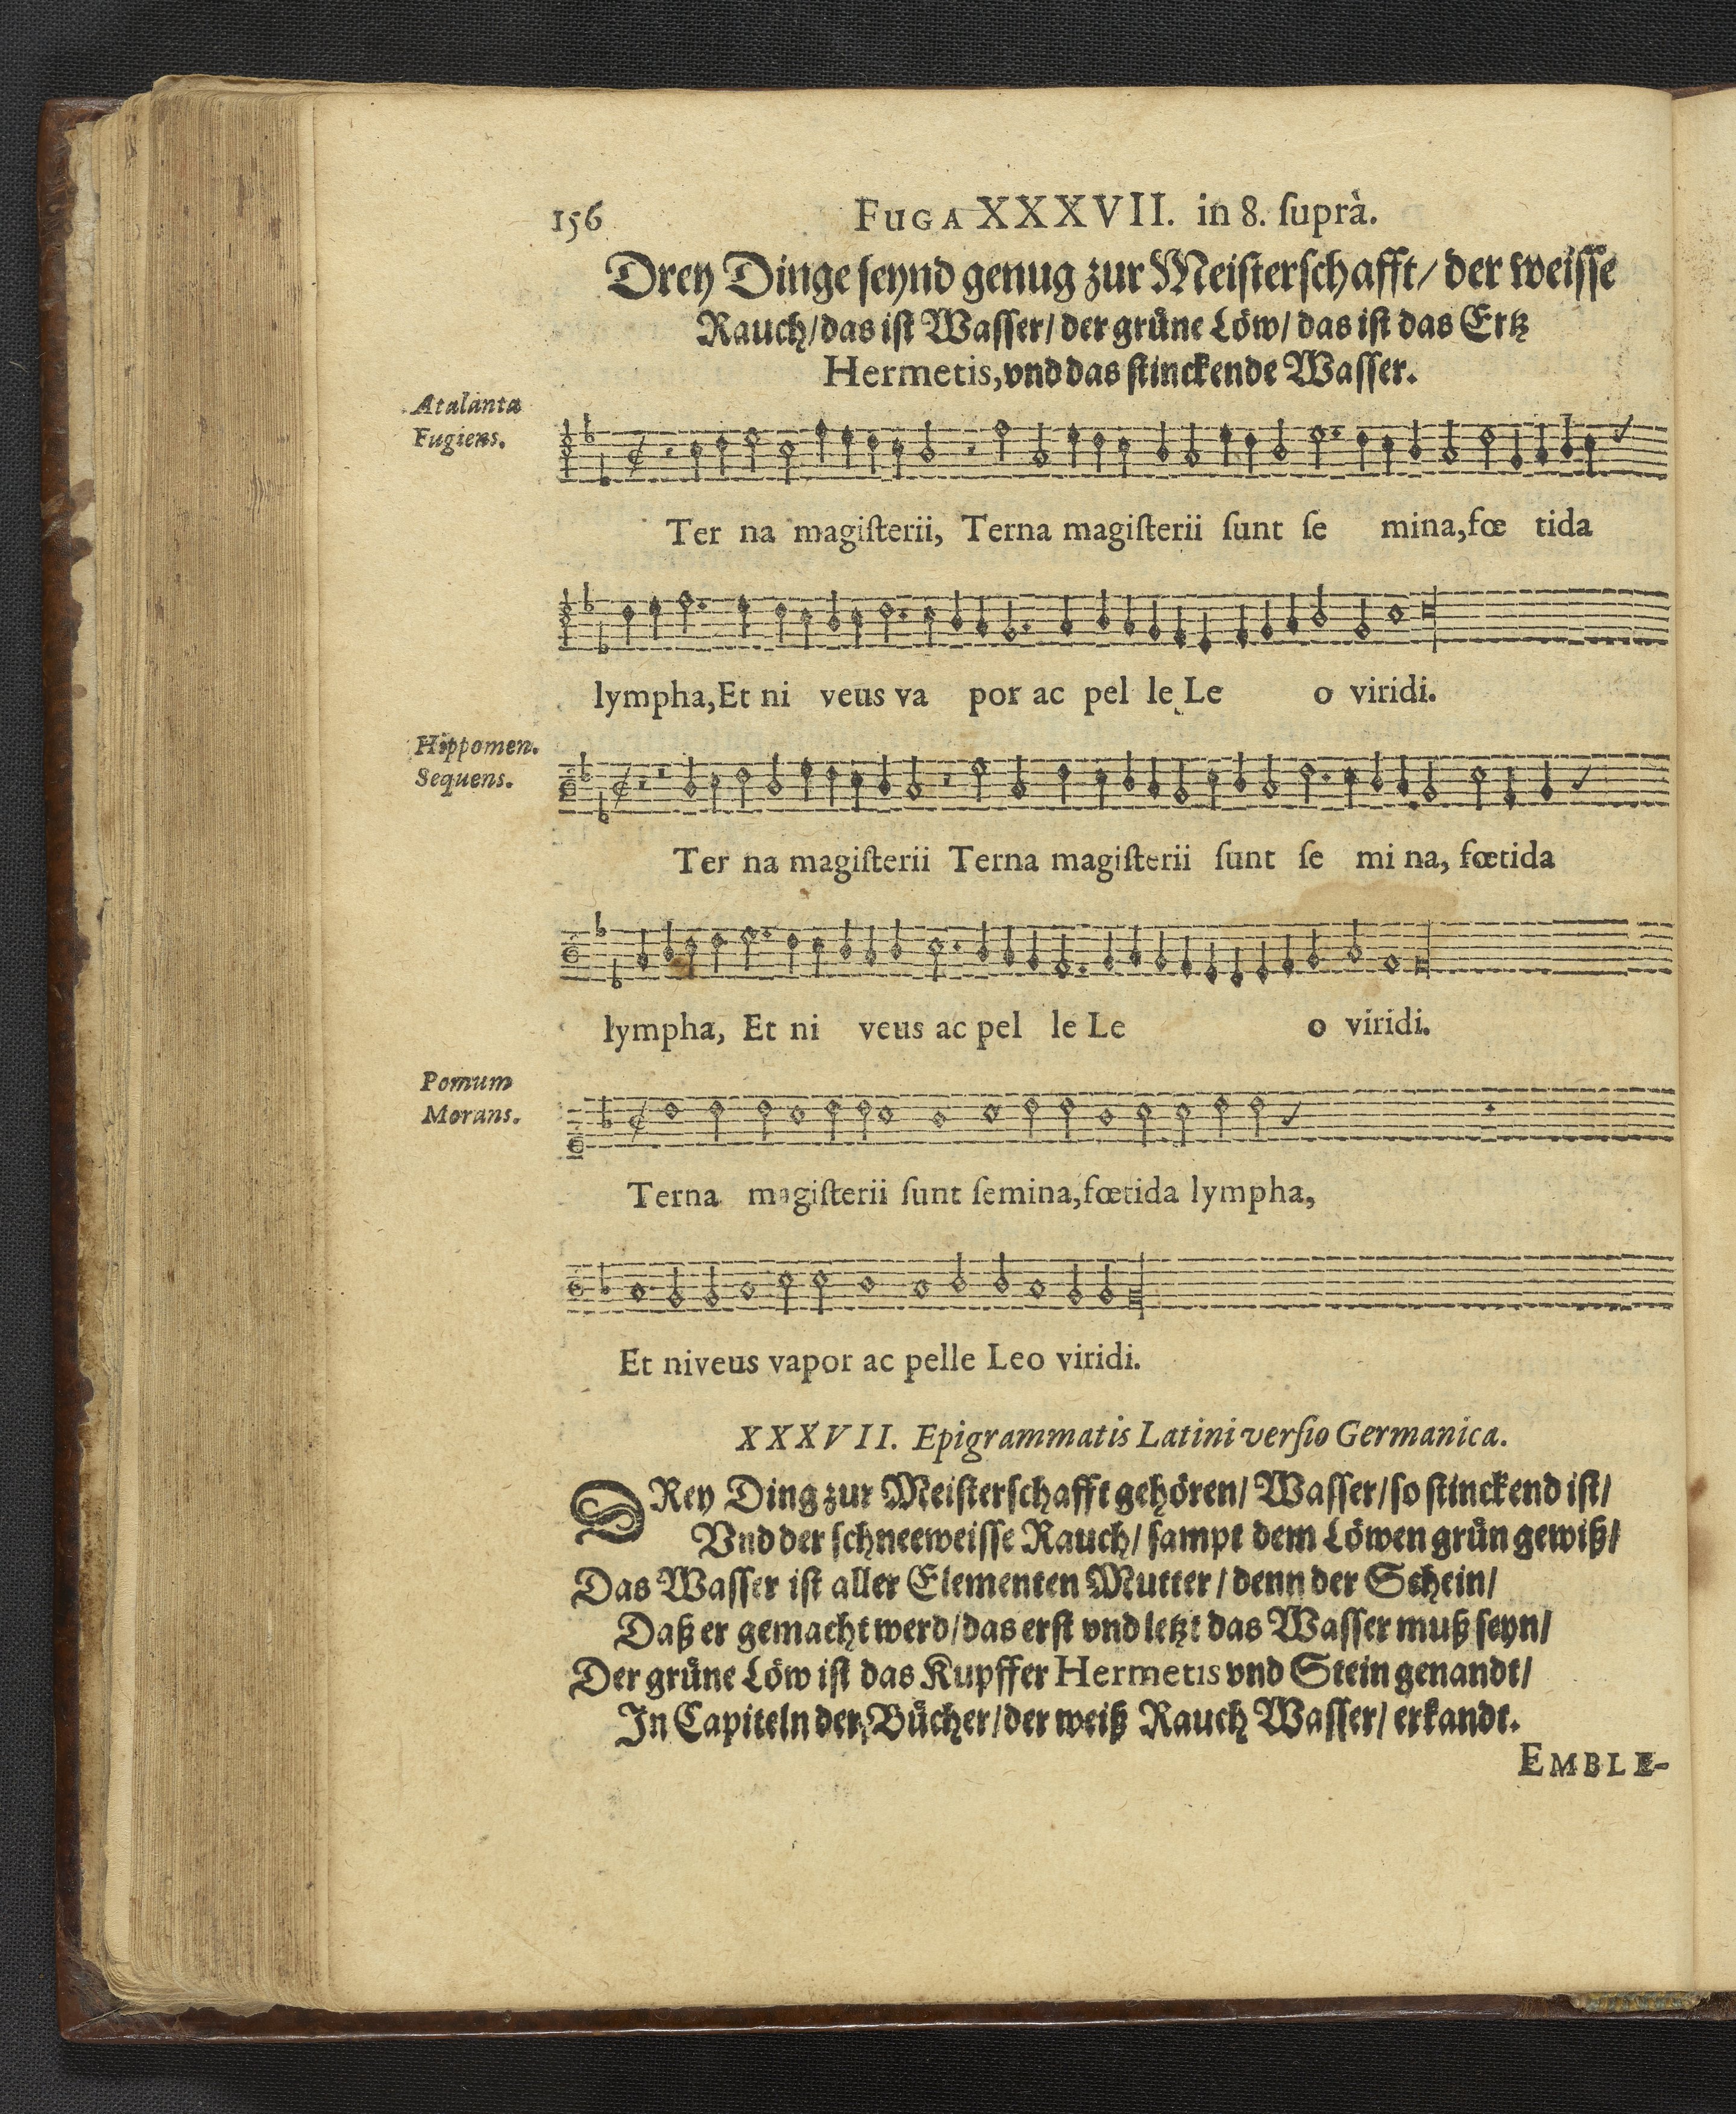 156 FUGA XXXVII. in 8. ſuprà.
Drey Dinge ſeynd genug zur Meiſterſchafft/ der weiſſe
Rauch/ das iſt Waſſer/ der grüne Löw/ das iſt das Ertz
Hermetis, vnd das ſtinckende Waſſer.
Atalanta
Fugiens.
Ter na magiſterii, Terna magiſterii ſunt ſe mina, fœ tida
lympha, Et ni veus va por ac pel le Le o viridi.
Hippomen.
Sequens.
Ter na magiſterii Terna magiſterii ſunt ſe mi na, fœtida
lympha, Et ni veus ac pel le Le o viridi.
Pomum
Morans.
Terna magiſterii ſunt ſemina, fœtida lympha,
Et niveus vapor ac pelle Leo viridi.
XXXVII. Epigrammatis Latini verſio Germanica.
DRey Ding zur Meiſterſchafft gehören/ Waſſer/ ſo ſtinckend iſt/
Vnd der ſchneeweiſſe Rauch/ ſampt dem Löwen grün gewiß/
Das Waſſer iſt aller Elementen Mutter/ denn der Schein/
Daß er gemacht werd/ das erſt vnd letzt das Waſſer muß ſeyn/
Der grüne Löw iſt das Kupffer Hermetis vnd Stein genandt/
In Capiteln der Bücher/ der weiß Rauch Waſſer/ erkandt.
EMBLE-